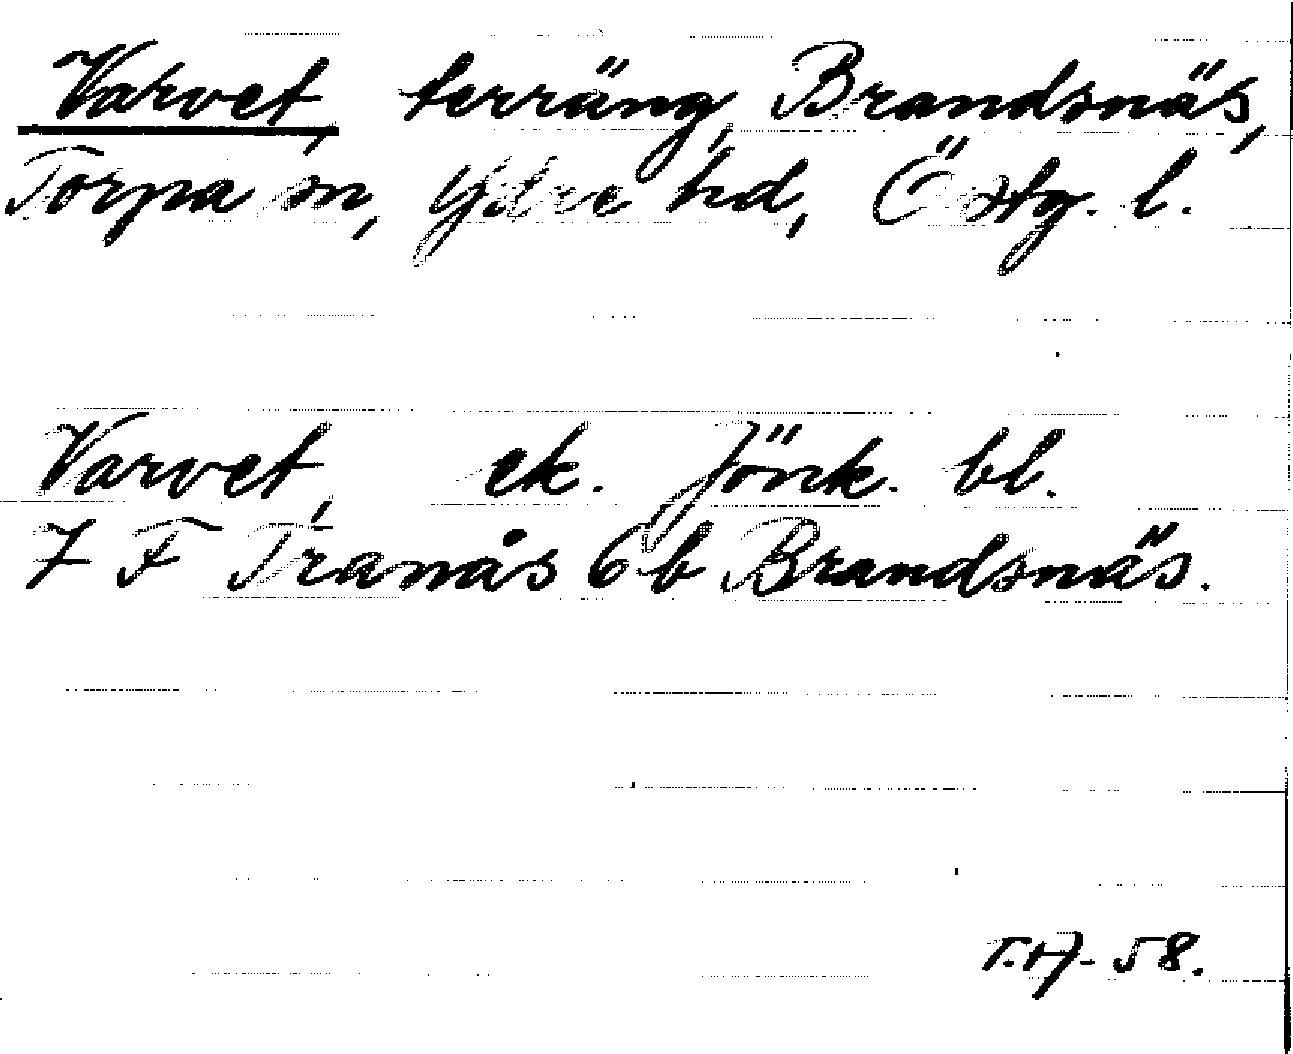 Varvet, terräng, Brandsnäs,
Torpa sn, Ydre hd, Östg. l.
Varvet, ek. Jönk. bl.
7 F Tranås 6 b Brandsnäs.
T.H-58.